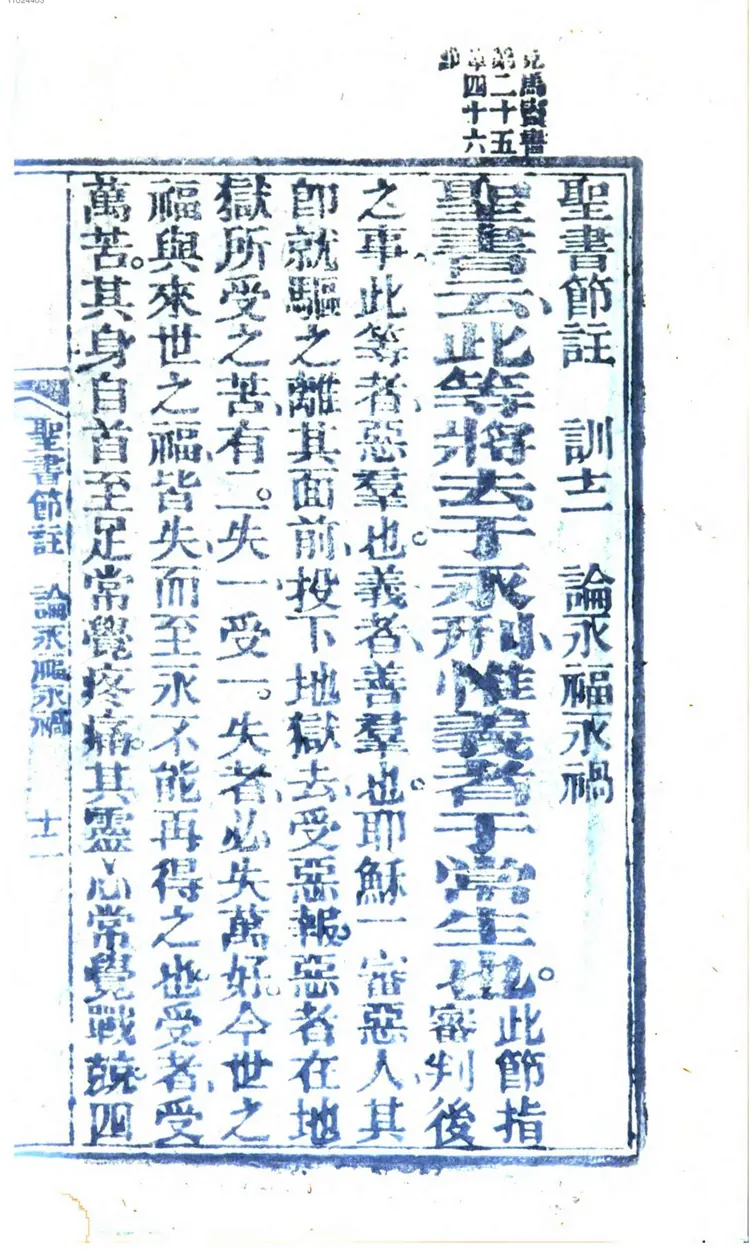 11024403
見馬竇書
第二十五
章四十六
節
聖書節註 訓十二 論永福永禍
聖書云、此等將去于永刑、惟義者于常生也。此節指
審判後
之事、此等者、惡羣也。義者、善羣也。耶穌一審惡人、其
卽就驅之離其面前、投下地獄去、受惡報。惡者在地
獄所受之苦、有二。失一受一。失者、必失萬好。今世之
福、與來世之福、皆失、而至永不能再得之也。受者、受
萬苦。其身自首至足常覺疼痛。其靈心常覺戰𢥠。四
聖書節註 論永福永禍 十二